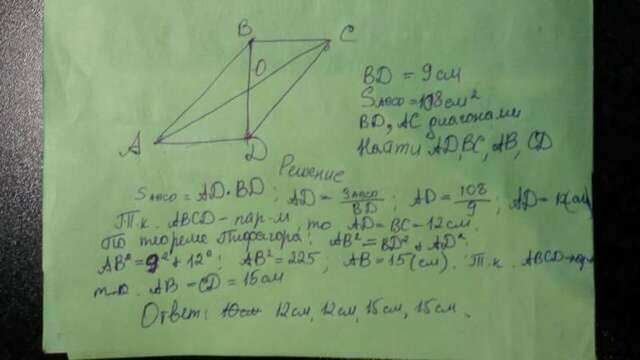 B C
O
A D
BD = 9 см
SABCD = 108 см²
BD, AC диагонали
Найти AD, BC, AB, CD
Решение
SABCD = AD · BD; AD = SABCD / BD; AD = 108 / 9; AD = 12(см)
Т.к. ABCD - пар-м, то AD = BC = 12 см.
По теореме Пифагора: AB² = BD² + AD².
AB² = 9² + 12²; AB² = 225, AB = 15 (см). Т.к. ABCD - пар-м
то AB = CD = 15 см
Ответ: 12 см, 12 см, 15 см, 15 см.